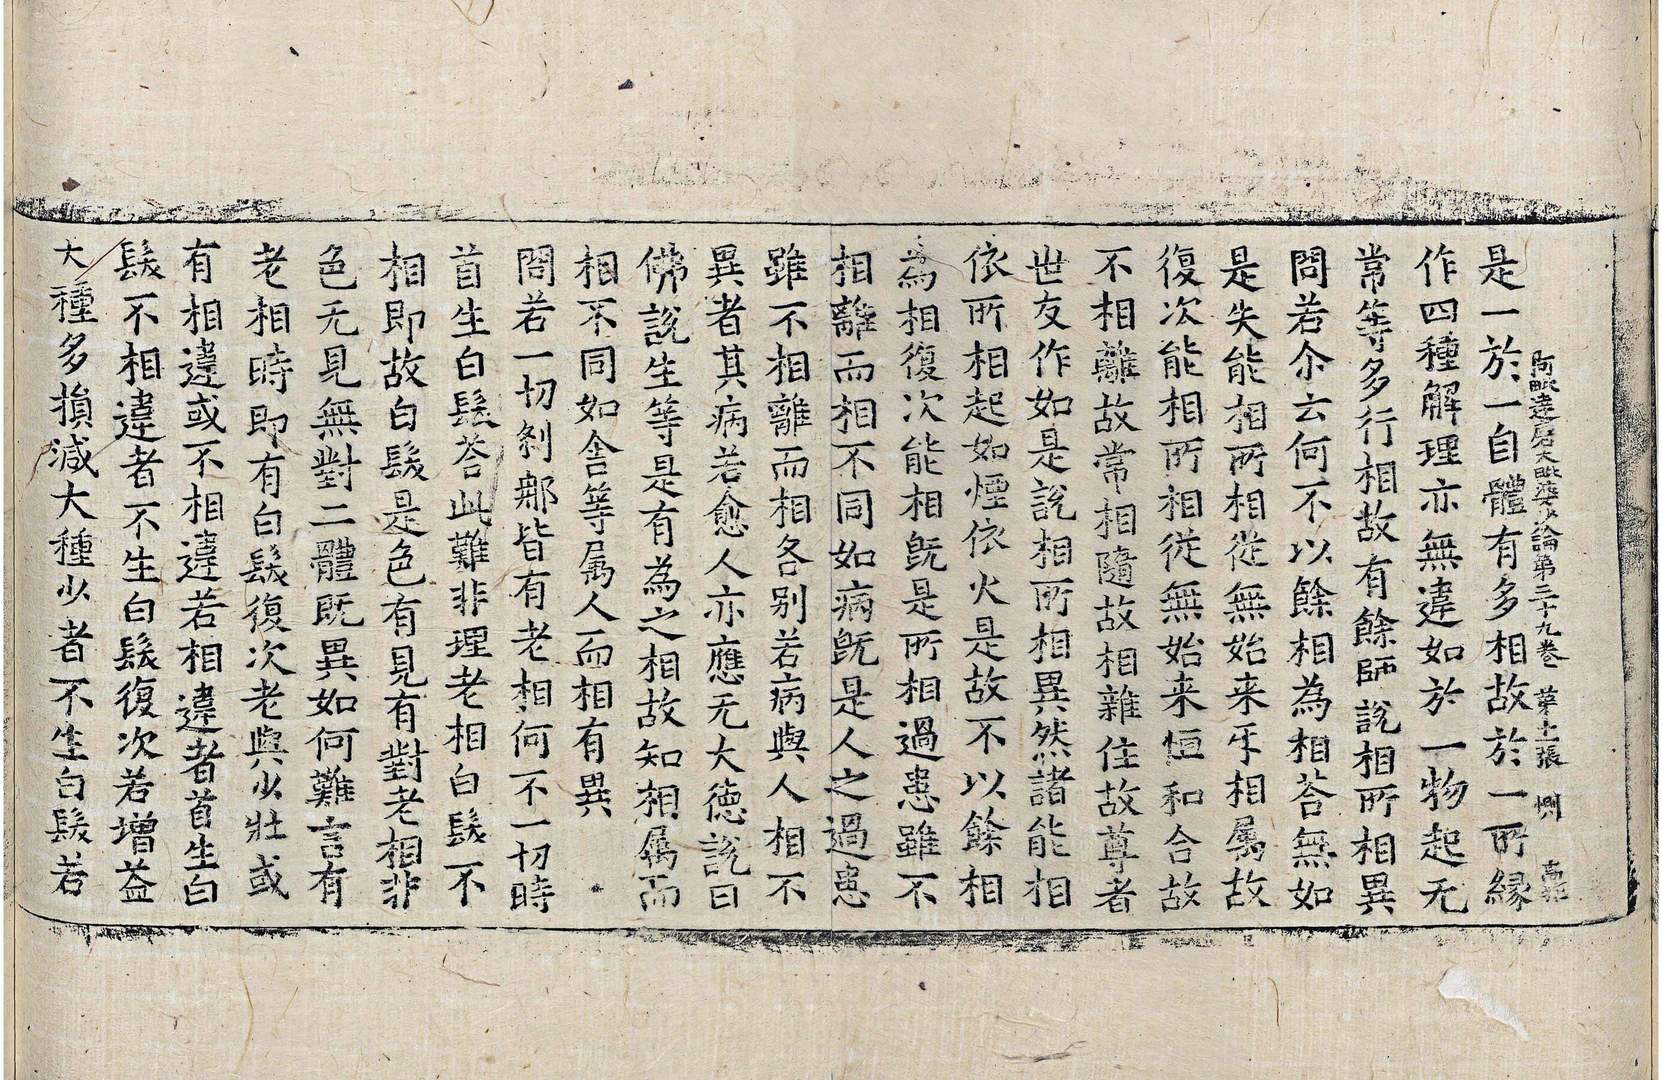 阿毗達磨大毗婆沙論第三十九卷 第十張 惻
是一於一自體有多相故於一所緣
作四種解理亦無違如於一物起无
常等多行相故有餘師說相所相異
問若尒云何不以餘相為相荅無如
是失能相所相從無始来乐相属故
復次能相所相從無始来恒和合故
不相離故常相隨故相雜住故尊者
世友作如是說相所相異然諸能相
依所相起如煙依火是故不以餘相
為相復次能相旣是所相過患雖不
相離而相不同如病旣是人之過患
雖不相離而相各別若病與人相不
異者其病若愈人亦應无大德說曰
佛說生等是有為之相故知相属而
相不同如舍等属人而相有異
問若一切刹那皆有老相何不一切時
首生白髮荅此難非理老相白髮不
相即故白髮是色有見有對老相非
色无見無對二體旣異如何難言有
老相時即有白髮復次老與少壯或
有相違或不相違若相違者首生白
髮不相違者不生白髮復次若增益
大種多損減大種少者不生白髮若